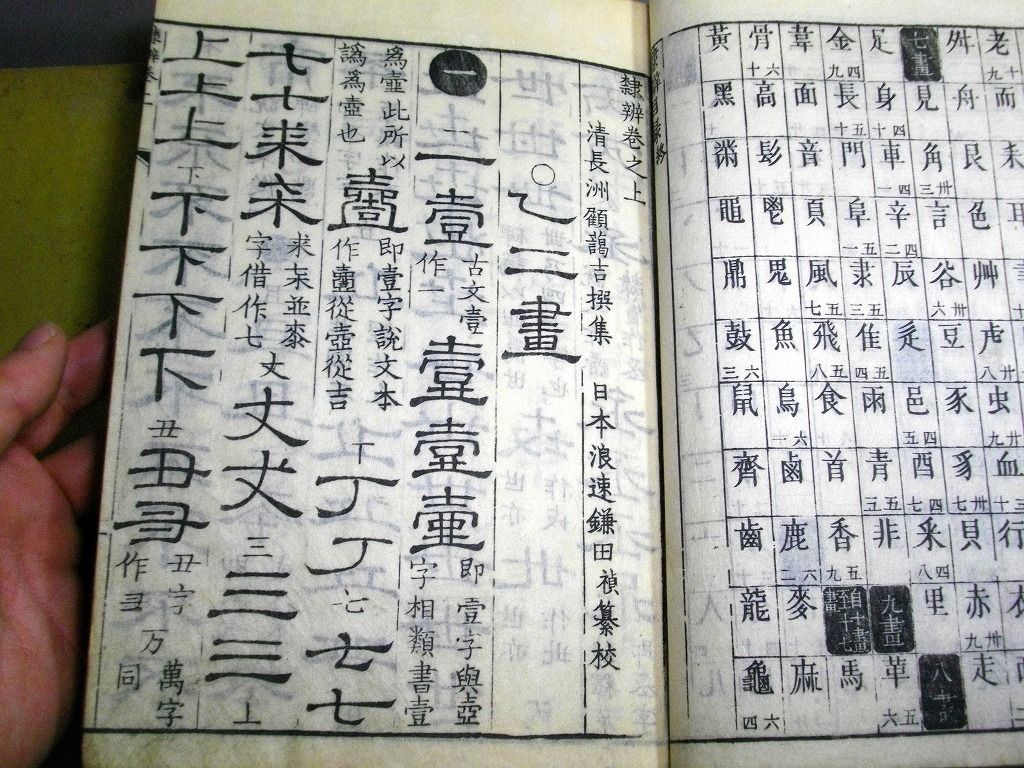 老 十九 而 耒 耳
舛 舟 艮 色 艸 卅 虍 卅八 虫 卅九 血 行 衣
七畫 見 角 卅三 言 谷 卅六 豆 豕 豸 卅七 貝 赤 卅九 走
足 身 四十 車 四一 辛 四二 辰 辵 邑 四五 酉 四七 釆 四八 里 八畫
金 四九 長 五十 門 阜 五一 隶 五三 隹 五四 雨 青 五五 非 九畫 革 五六
韋 面 音 頁 風 五七 飛 五八 食 首 香 五九 自十至十七畫 馬
骨 六十 高 髟 鬯 鬼 魚 鳥 六一 鹵 鹿 六二 麥 麻
黃 黑 黹 黽 鼎 鼓 六三 鼠 齊 齒 龍 龜 六四
隸辨卷之上
清長洲顧藹吉撰集 日本浪速鎌田禎纂校
○乙二畫
一 一 一 壹 古文壹作一 壹 壹 壷 即壹字與壺字相類書壹
爲壷此所以譌爲壺也 壹 即壹字說文本作壹從壺從吉 丁 丁 丁 七 七 七
七 七 耒 桼 求桼並桼字借作七 丈 丈 丈 三 三 三 上
上 上 上 下 下 下 下 下 丑 丑 彐 丑字作彐 万 萬字同